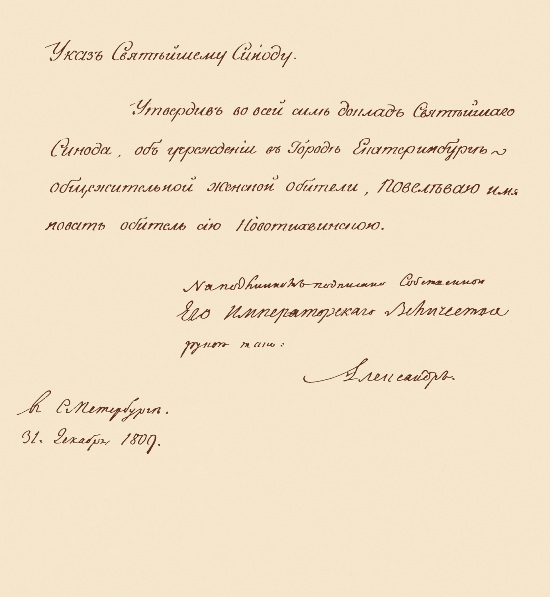 Указъ Святѣйшему Синоду.
Утвердивъ во всей силѣ докладъ Святѣйшаго
Синода, объ учрежденіи въ Городѣ Екатеринбургѣ
общежительной женской обители, Повелѣваю име
новать обитель сію Новотихвинскою.
На подлинномъ подписано Собственною
Его Императорскаго Величества
рукою тако:
Александръ.
въ С. Петербургѣ.
31. Декабря 1809.